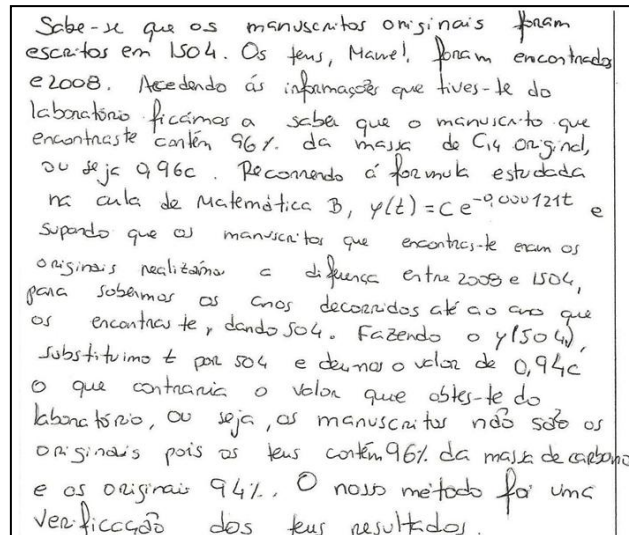 Sabe-se que os manuscritos originais foram
escritos em 1504. Os teus, Manel, foram encontrados
e 2008. Acedendo ás informações que tives-te do
laboratório ficámos a saber que o manuscrito que
encontraste contém 96% da massa de C14 original,
ou seja 0,96c. Recorrendo á formula estudada
na aula de Matemática B, y(t)=Ce^-0,000121t e
supondo que os manuscritos que encontras-te eram os
originais realizámos a diferença entre 2008 e 1504,
para sabermos os anos decorridos até ao ano que
os encontras te, dando 504. Fazendo o y(504),
substituimo t por 504 e deu-nos o valor de 0,94c
o que contraria o valor que obtes-te do
laboratório, ou seja, os manuscritos não são os
originais pois os teus contém 96% da massa de carbono
e os originais 94%. O nosso método foi uma
verificação dos teus resultados.